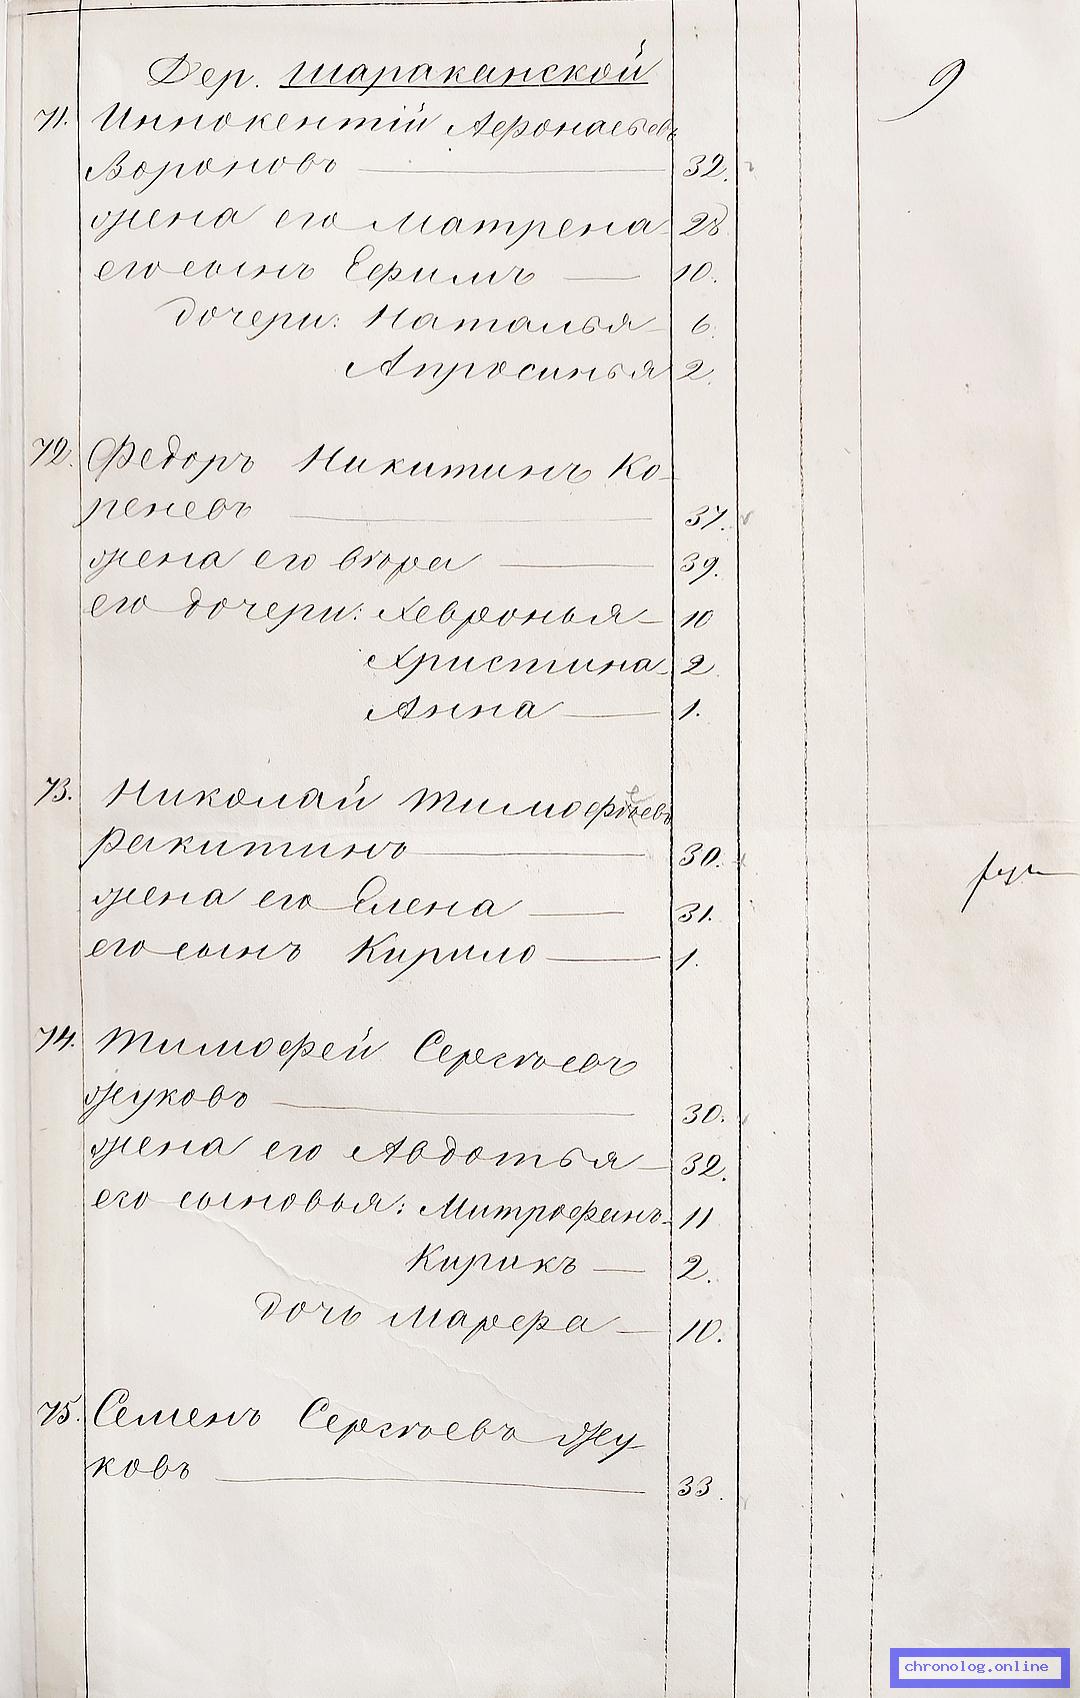 9
Дер. Шараканской
71. Иннокентій Афонасьевъ
Вороновъ 32.
жена его Матрена 28
его сынъ Ефимъ 10.
дочери: Наталья 6.
Апросинья 2.
72. Федоръ Никитинъ Ко-
реневъ 37.
жена его Вѣра 39.
его дочери: Хевронья 10
Христина 2.
Анна 1.
73. Николай Тимофеевъ
Ракитинъ 30.
жена его Елена 31.
его сынъ Кирило 1.
74. Тимофей Сергѣевъ
Жуковъ 30.
жена его Авдотья 32.
его сыновья: Митрофанъ 11
Кирикъ 2.
дочь Марфа 10.
75. Семенъ Сергѣевъ Жу
ковъ 33.
chronolog.online